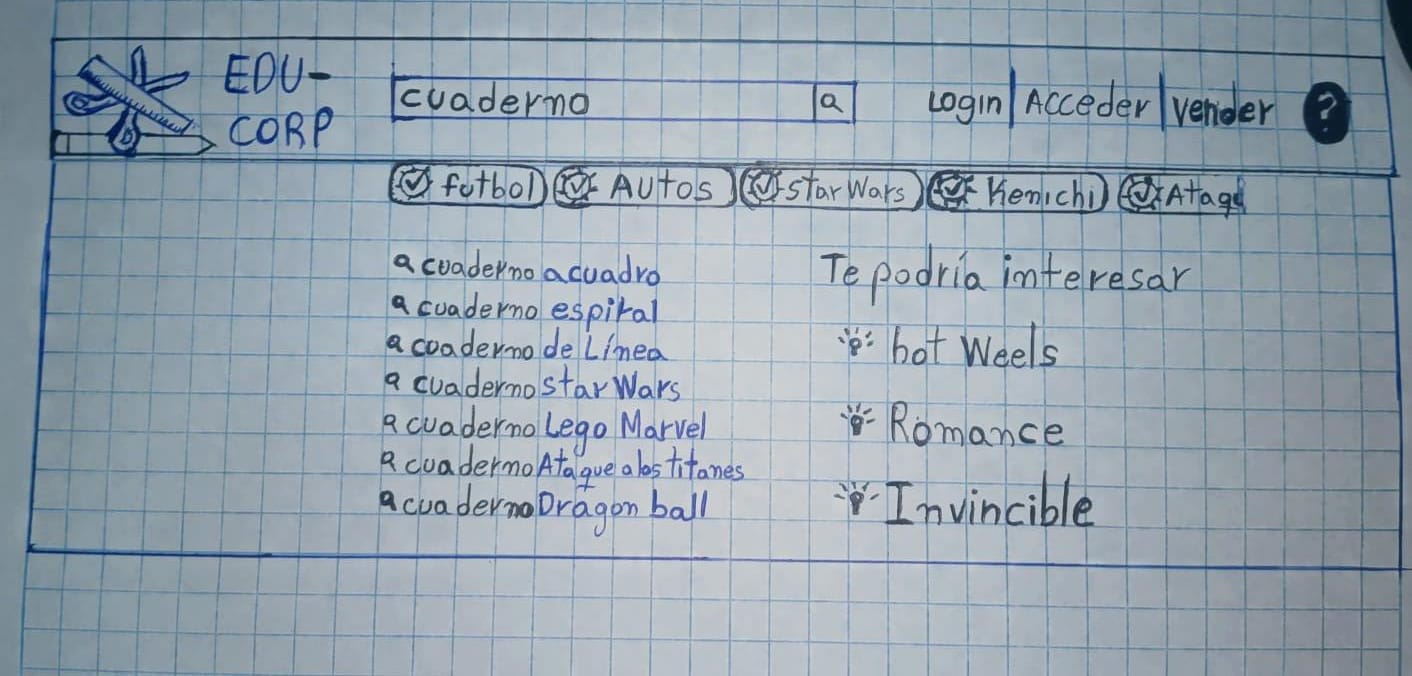 EDU-
CORP
cuaderno
Login | Acceder | vender ?
futbol Autos star Wars Kenichi Ataqu
cuaderno a cuadro
cuaderno espiral
cuaderno de Línea
cuaderno star Wars
cuaderno Lego Marvel
cuaderno Ataque a los titanes
cuaderno Dragon ball
Te podría interesar
hot Weels
Romance
Invincible